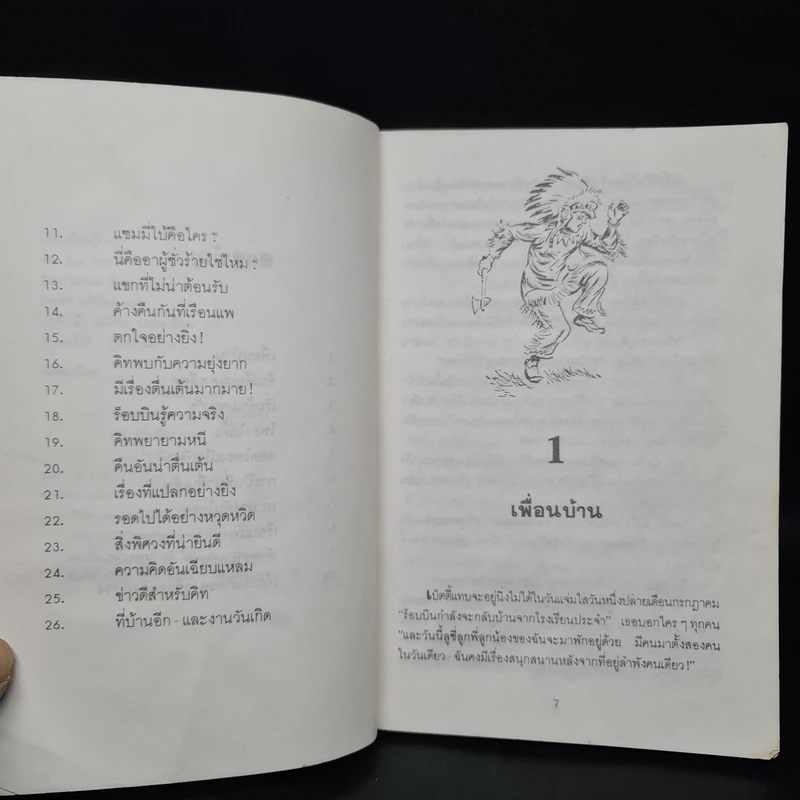 11. แซมมี่ไบ้คือใคร ?
12. นี่คืออาผู้ชั่วร้ายใช่ไหม ?
13. แขกที่ไม่น่าต้อนรับ
14. ค้างคืนกันที่เรือนแพ
15. ตกใจอย่างยิ่ง !
16. คิทพบกับความยุ่งยาก
17. มีเรื่องตื่นเต้นมากมาย !
18. ร็อบบินรู้ความจริง
19. คิทพยายามหนี
20. คืนอันน่าตื่นเต้น
21. เรื่องที่แปลกอย่างยิ่ง
22. รอดไปได้อย่างหวุดหวิด
23. สิ่งพิศวงที่น่ายินดี
24. ความคิดอันเฉียบแหลม
25. ข่าวดีสำหรับคิท
26. ที่บ้านอีก - และงานวันเกิด
1
เพื่อนบ้าน
เบ็ตตี้แทบจะอยู่นิ่งไม่ได้ในวันแจ่มใสวันหนึ่งปลายเดือนกรกฎาคม
"ร็อบบินกำลังจะกลับบ้านจากโรงเรียนประจำ" เธอบอกใคร ๆ ทุกคน
"และวันนี้ลูซี่ลูกพี่ลูกน้องของฉันจะมาพักอยู่ด้วย มีคนมาตั้งสองคน
ในวันเดียว - ฉันคงมีเรื่องสนุกสนานหลังจากที่อยู่ลำพังคนเดียว !"
7